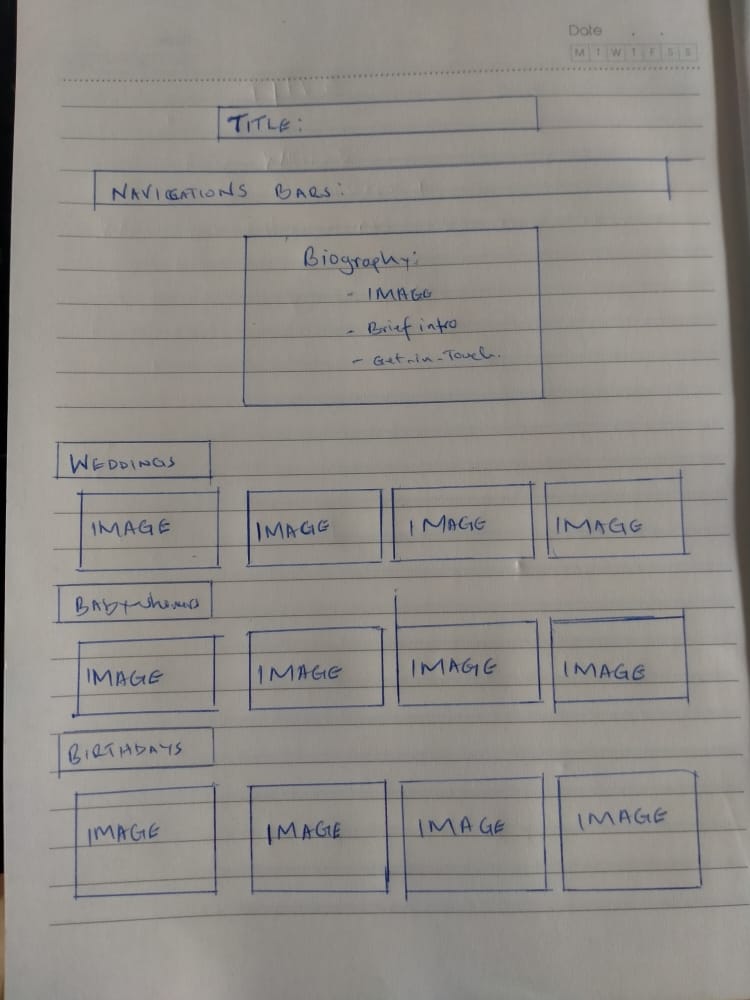 Date . .
M T W T F S S
TITLE:
NAVIGATIONS BARS:
Biography:
- IMAGE
- Brief intro
- Get-in-Touch.
WEDDINGS
IMAGE IMAGE IMAGE IMAGE
Baby-showers
IMAGE IMAGE IMAGE IMAGE
BIRTHDAYS
IMAGE IMAGE IMAGE IMAGE